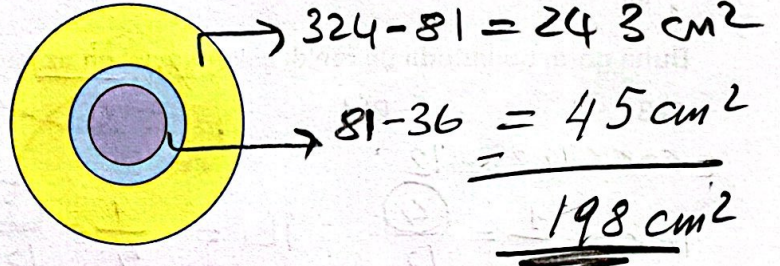 324-81 = 243 cm²
81-36 = 45 cm²
198 cm²